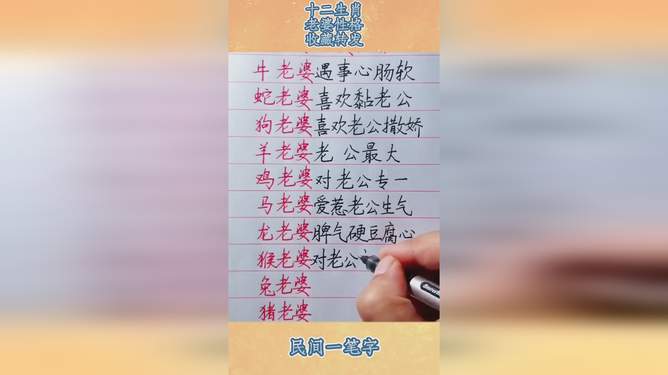 十二生肖
老婆性格
收藏转发
牛老婆遇事心肠软
蛇老婆喜欢黏老公
狗老婆喜欢老公撒娇
羊老婆老公最大
鸡老婆对老公专一
马老婆爱惹老公生气
龙老婆脾气硬豆腐心
猴老婆对老公
兔老婆
猪老婆
民间一笔字